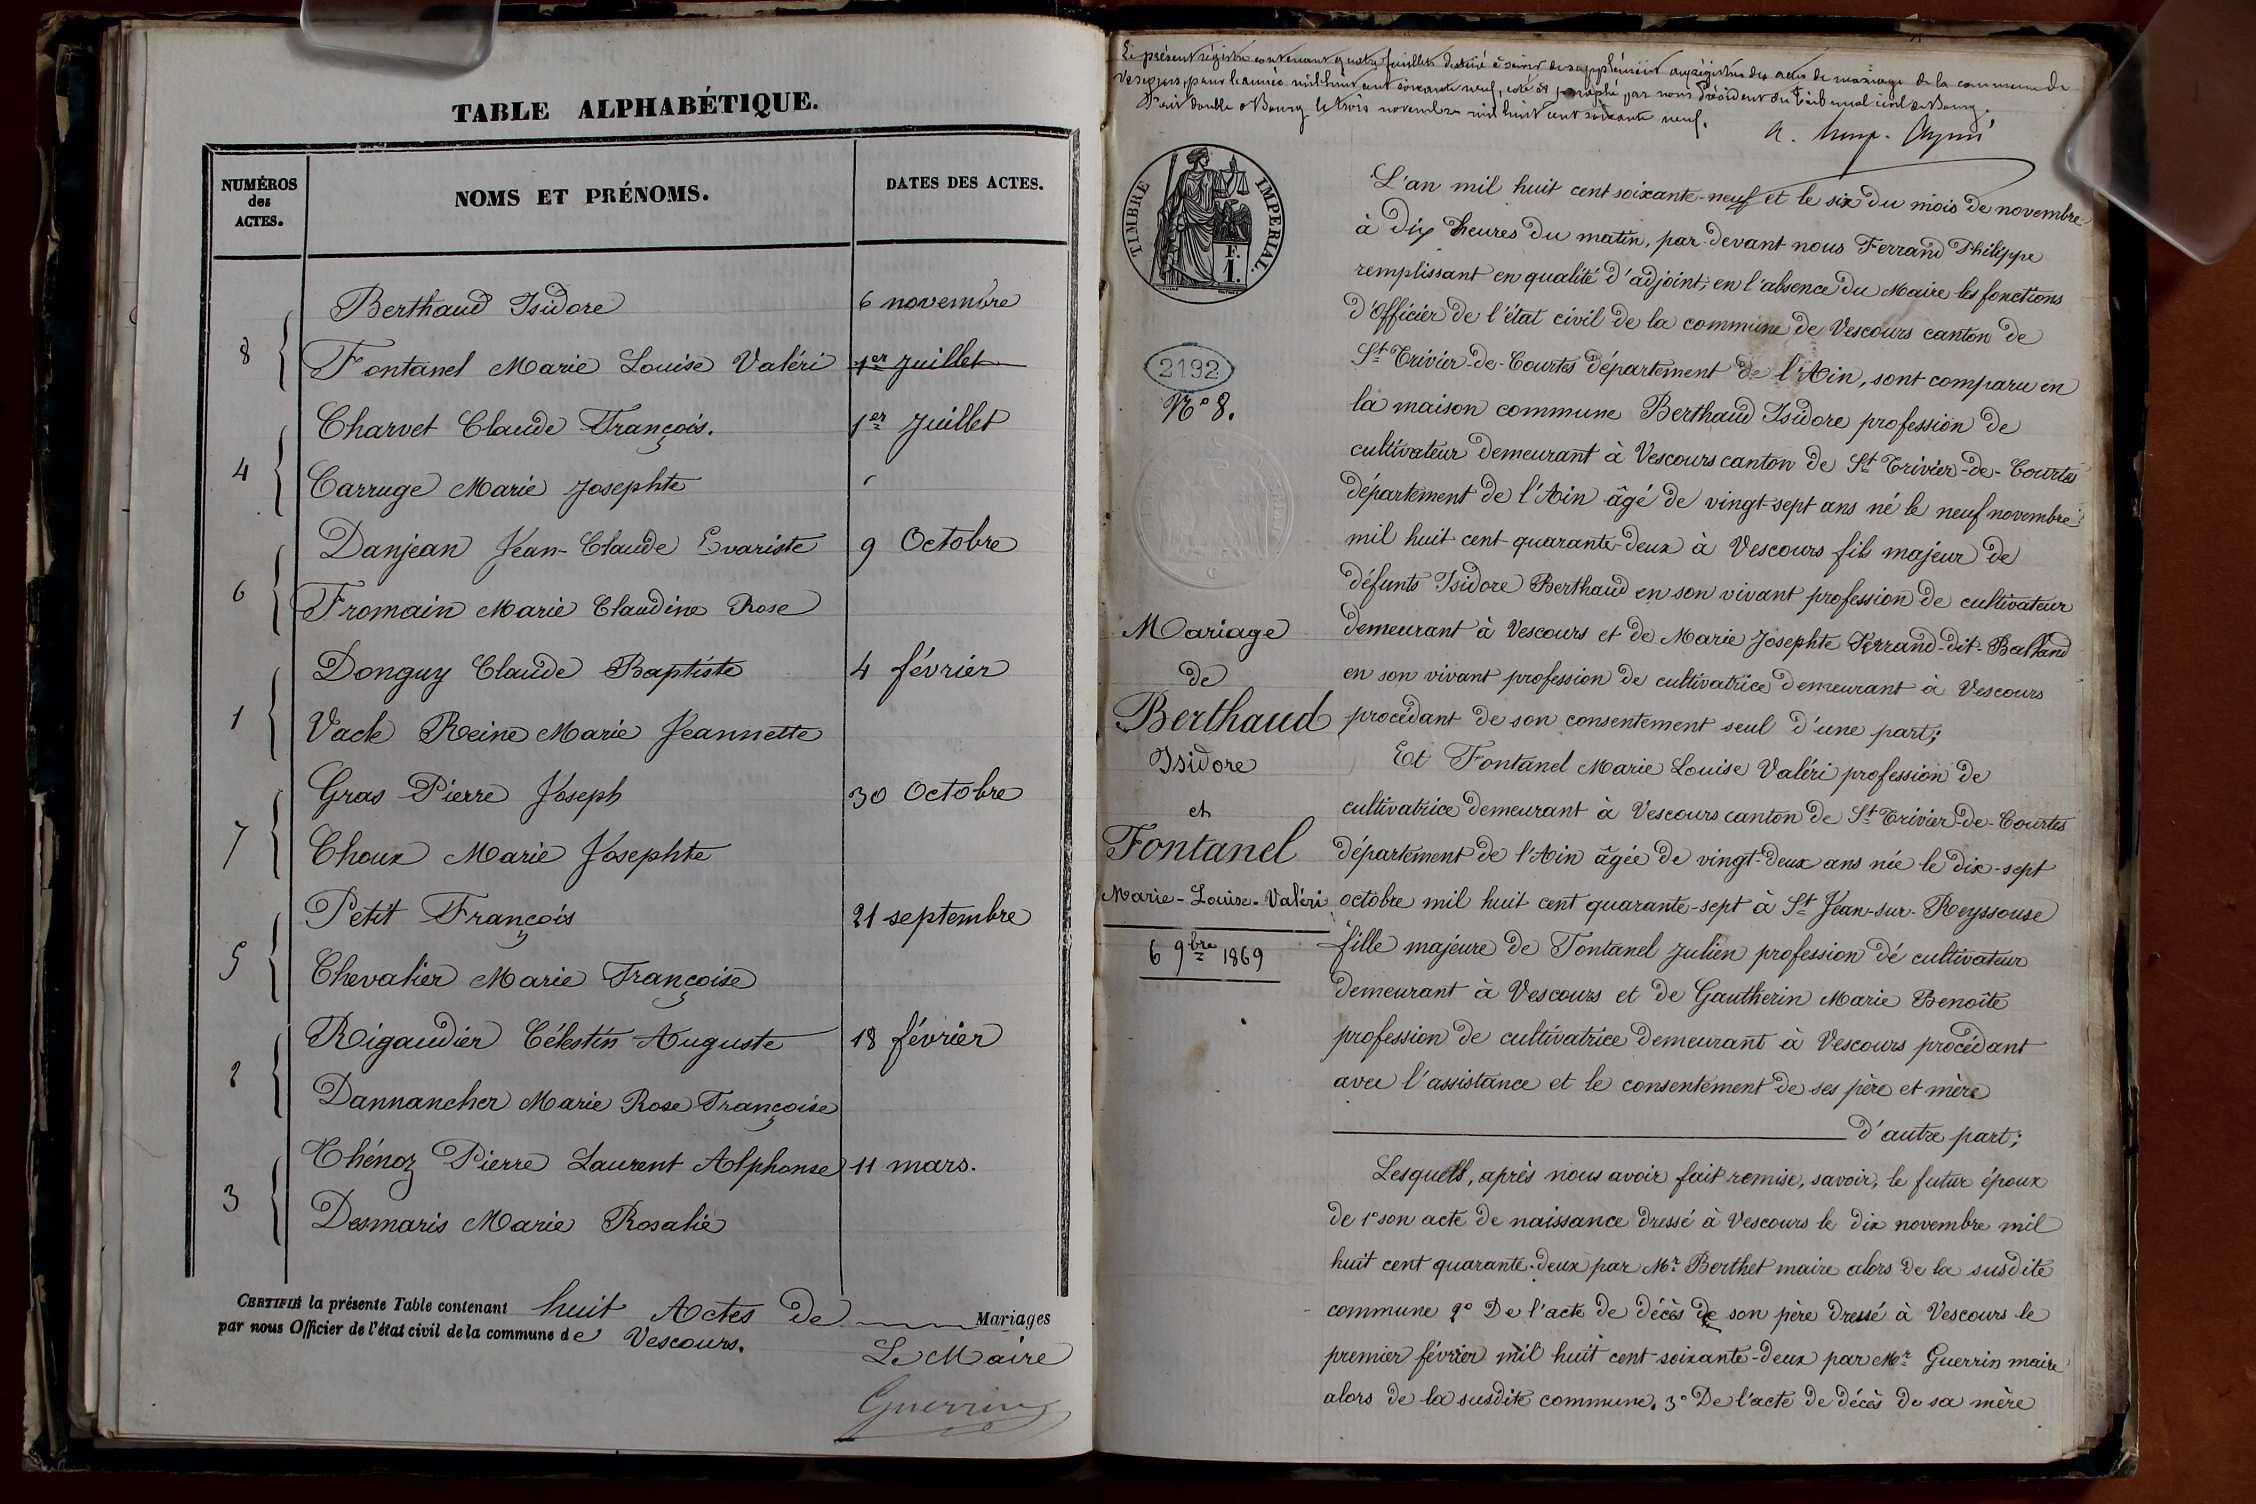 TABLE ALPHABÉTIQUE.
NUMÉROS
des
ACTES.
NOMS ET PRÉNOMS.
DATES DES ACTES.
Berthaud Isidore 6 novembre
8
Fontanel Marie Louise Valéri 1er juillet
Charvet Claude François. 1er Juillet
4
Carruge Marie Josephte "
Danjean Jean-Claude Evariste 9 Octobre
6
Fromain Marie Claudine Rose
Donguy Claude Baptiste 4 février
1
Vack Reine Marie Jeannette
Gras Pierre Joseph 30 Octobre
7
Choux Marie Josephte
Petit François 21 septembre
5
Chevalier Marie Françoise
Rigaudier Célestin Auguste 18 février
2
Dannancher Marie Rose Françoise
Thénoz Pierre Laurent Alphonse 11 mars.
3
Desmaris Marie Rosalie
CERTIFIÉ la présente Table contenant huit Actes de Mariages
par nous Officier de l'état civil de la commune de Vescours.
Le Maire
Guerrin
Le présent régistre contenant quatre feuillets destiné à servir de supplément au régistre des actes de mariage de la commune de
Vescours, pour l'année mil huit cent soixante neuf, coté et paraphé par nous Président du Tribunal civil de Bourg.
Bourg le trois novembre mil huit cent soixante neuf.
TIMBRE IMPÉRIAL.
F.
1.
2192
N° 8.
Mariage
de
Berthaud
Isidore
et
Fontanel
Marie-Louise-Valéri
6 9bre 1869
L'an mil huit cent soixante-neuf et le six du mois de novembre
à dix heures du matin, par-devant nous Ferrand Philippe
remplissant en qualité d'adjoint, en l'absence du Maire les fonctions
d'Officier de l'état civil de la commune de Vescours canton de
St Trivier-de-Courtes département de l'Ain, sont comparu en
la maison commune Berthaud Isidore profession de
cultivateur demeurant à Vescours canton de St Trivier-de-Courtes
département de l'Ain âgé de vingt-sept ans né le neuf novembre
mil huit cent quarante-deux à Vescours fils majeur de
défunts Isidore Berthaud en son vivant profession de cultivateur
demeurant à Vescours et de Marie Josephte Ferrand-dit-Balland
en son vivant profession de cultivatrice demeurant à Vescours
procédant de son consentement seul d'une part;
Et Fontanel Marie Louise Valéri profession de
cultivatrice demeurant à Vescours canton de St Trivier-de-Courtes
département de l'Ain âgée de vingt-deux ans née le dix-sept
octobre mil huit cent quarante-sept à St Jean-sur-Reyssouse
fille majeure de Fontanel Julien profession de cultivateur
demeurant à Vescours et de Gautherin Marie Benoîte
profession de cultivatrice demeurant à Vescours procédant
avec l'assistance et le consentement de ses père et mère
d'autre part;
Lesquels, après nous avoir fait remise, savoir, le futur époux
de 1° son acte de naissance dressé à Vescours le dix novembre mil
huit cent quarante-deux par Mr Berthet maire alors de la susdite
commune 2° De l'acte de décès de son père dressé à Vescours le
premier février mil huit cent soixante-deux par Mr Guerrin maire
alors de la susdite commune. 3° De l'acte de décès de sa mère